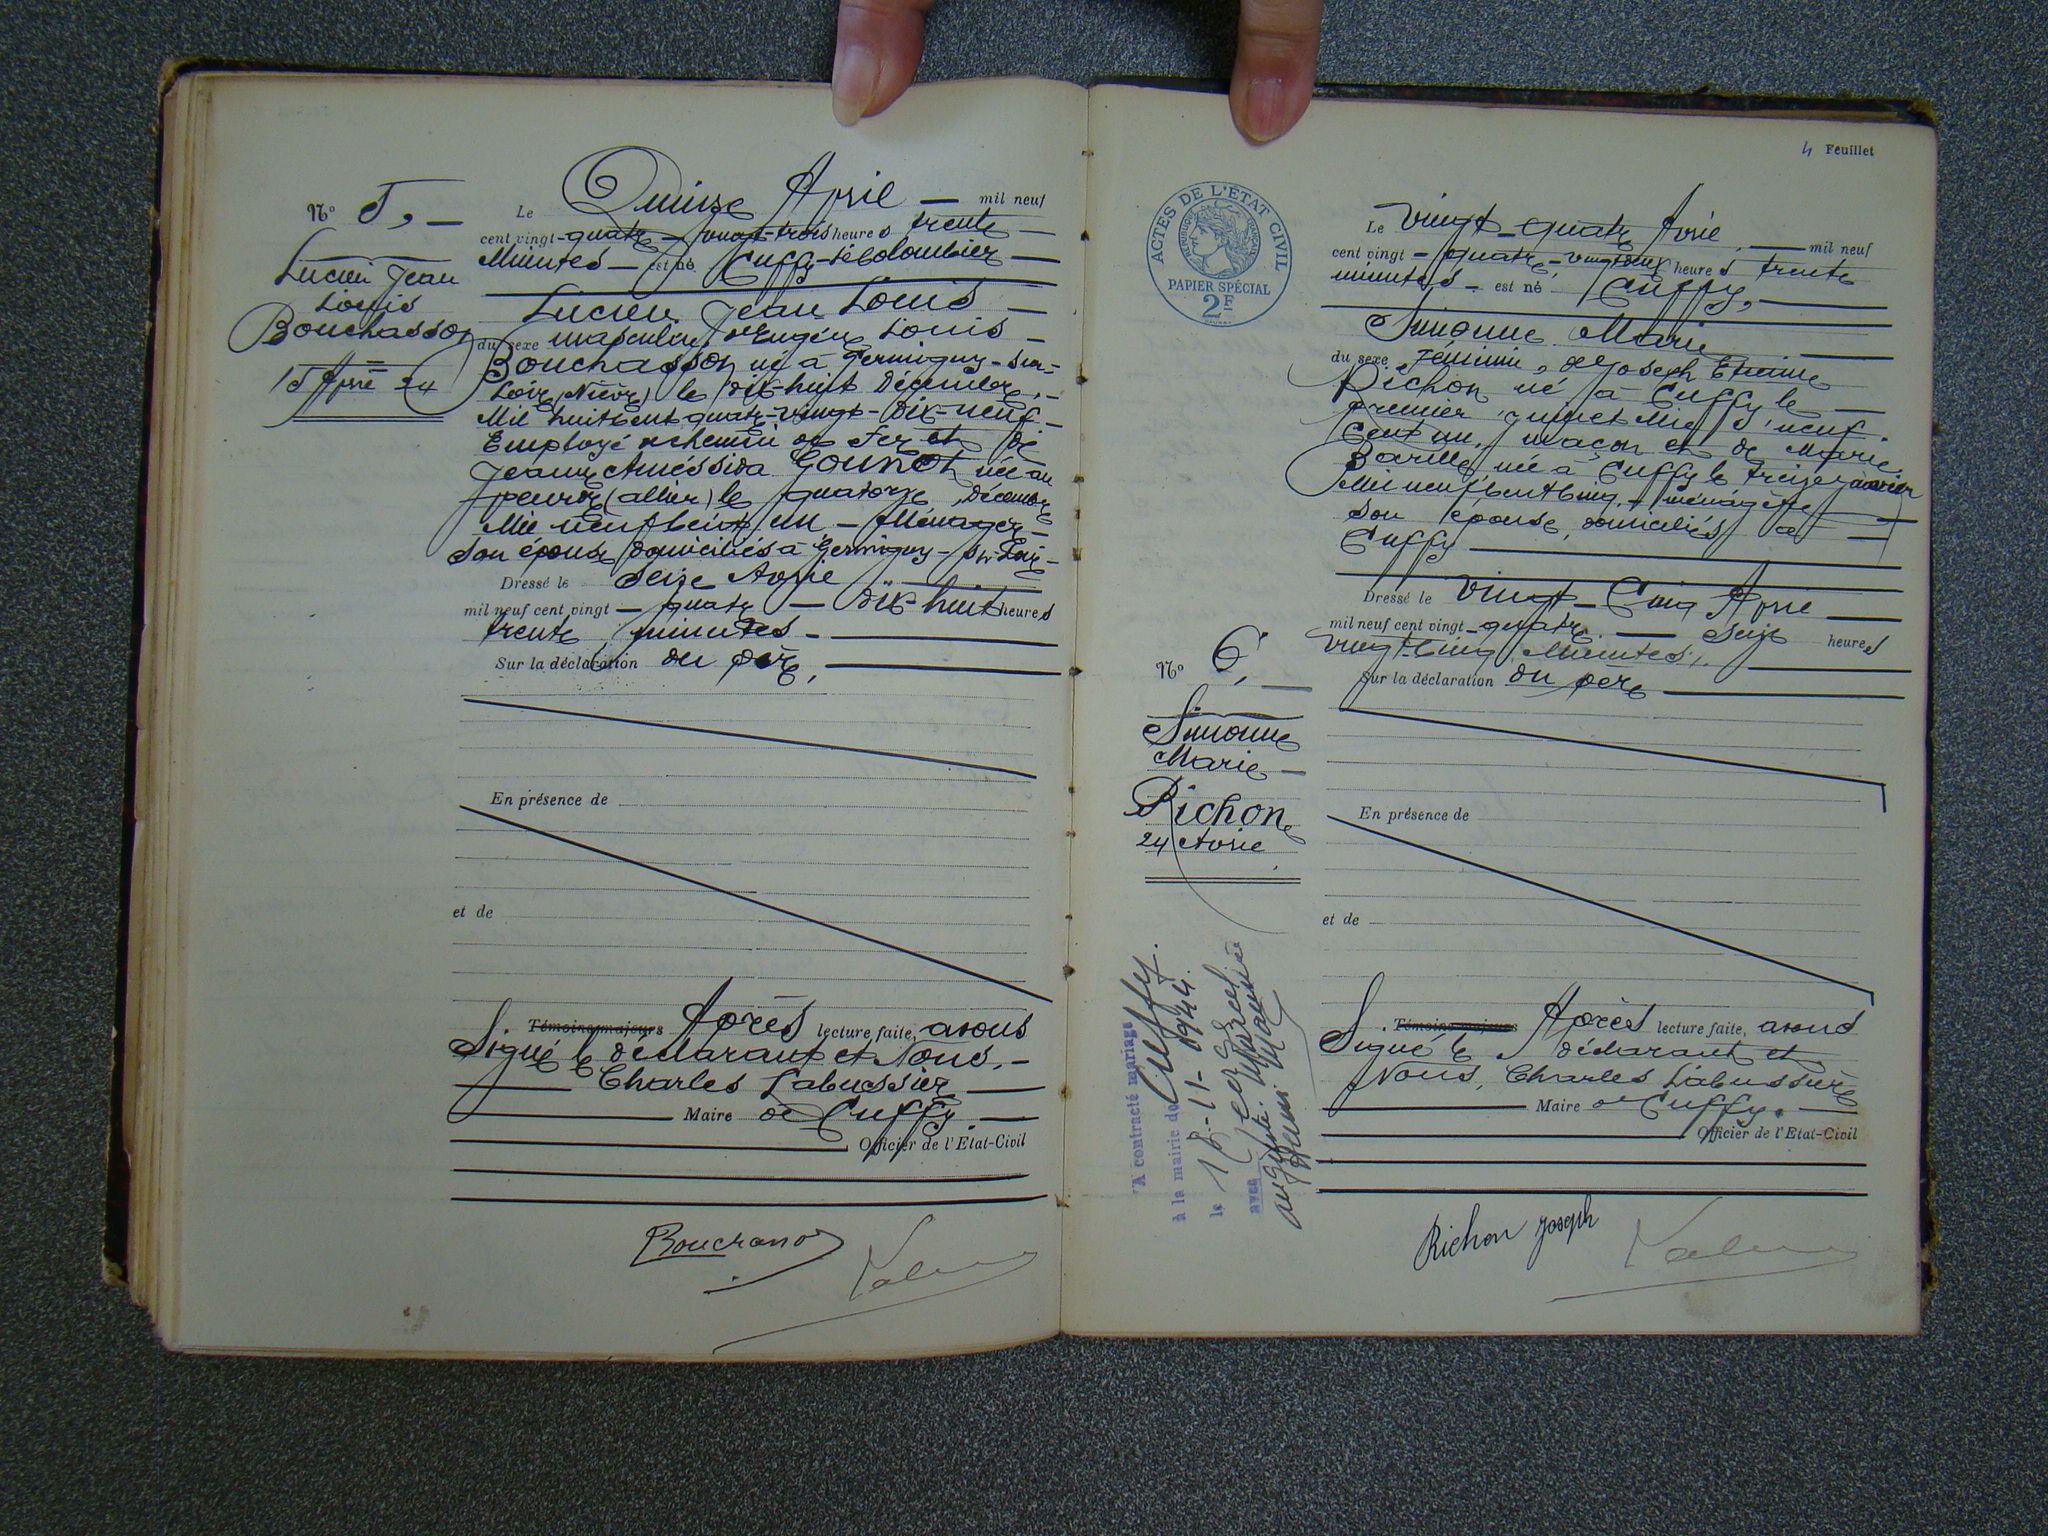 N° 5, —
Lucien Jean
Louis
Bouchasson
15 Avril 24
Le Quinze Avril — mil neuf
cent vingt-quatre — vingt-trois heures trente
Minutes — est né Cuffy-le Colombier —
Lucien Jean Louis —
du sexe masculin, de Eugène Louis —
Bouchasson né à Germigny-sur-
Loire (Nièvre) le dix-huit Décembre, —
Mil huit cent quatre-vingt-dix-neuf —
Employé chemin de Fer et de
Jeanne née au
(allier) le quatorze Décembre
Mil neuf cent un — Ménagère —
son épouse domiciliés à Germigny-sur-Loire —
Dressé le seize Avril —
mil neuf cent vingt — quatre — dix-huit heures
trente minutes —
Sur la déclaration du père,
En présence de
et de
Témoins majeurs Après lecture faite, avons
Signé le déclarant et Nous, —
Charles Labussière
Maire de Cuffy —
Officier de l'Etat-Civil
4 Feuillet
ACTES DE L'ETAT CIVIL
REPUBLIQUE FRANÇAISE
PAPIER SPÉCIAL
2F
Le vingt-quatre Avril — mil neuf
cent vingt — quatre — vingt-deux heures trente
minutes — est né Cuffy, —
Simonne Marie —
du sexe Féminin, de Joseph Etienne
Richon né à Cuffy le —
premier juillet Mil neuf
cent un, maçon et de Marie
née à Cuffy le treize janvier
Mil neuf cent cinq — ménagère —
son épouse, domiciliés à —
Cuffy
Dressé le vingt-Cinq Avril
mil neuf cent vingt-quatre — seize heures
vingt-cinq Minutes,
Sur la déclaration du père
En présence de
et de
Témoins majeurs Après lecture faite, avons
Signé le déclarant et
Nous, Charles Labussière
Maire de Cuffy. —
Officier de l'Etat-Civil
Richon Joseph
N° 6, —
Simonne
Marie —
Richon
24 Avril
A contracté mariage
à la mairie de Cuffy.
le 18-11-1944
avec